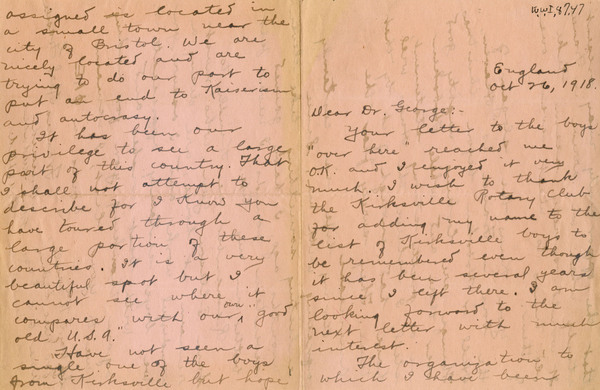 WWI, 87.47
England
Oct 26, 1918.
Dear Dr. George:-
Your letter to the boys
"over here" reached me
O.K. and I enjoyed it very
much. I wish to thank
the Kirksville Rotary Club
for adding my name to the
list of Kirksville boys to
be remembered even though
it has been several years
since I left there. I am
looking forward to the
next letter with much
interest.
The organization to
which I have been
assigned is located in
a small town near the
city of Bristol. We are
nicely located and are
trying to do our part to
put an end to Kaiserism
and autocrasy.
It has been our
privilege to see a large
part of this country. That
I shall not attempt to
describe for I know you
have toured through a
large portion of these
countries. It is a very
beautiful spot but I
cannot see where it
compares with our own "good
old U.S.A."
Have not seen a
single one of the boys
from Kirksville but hope